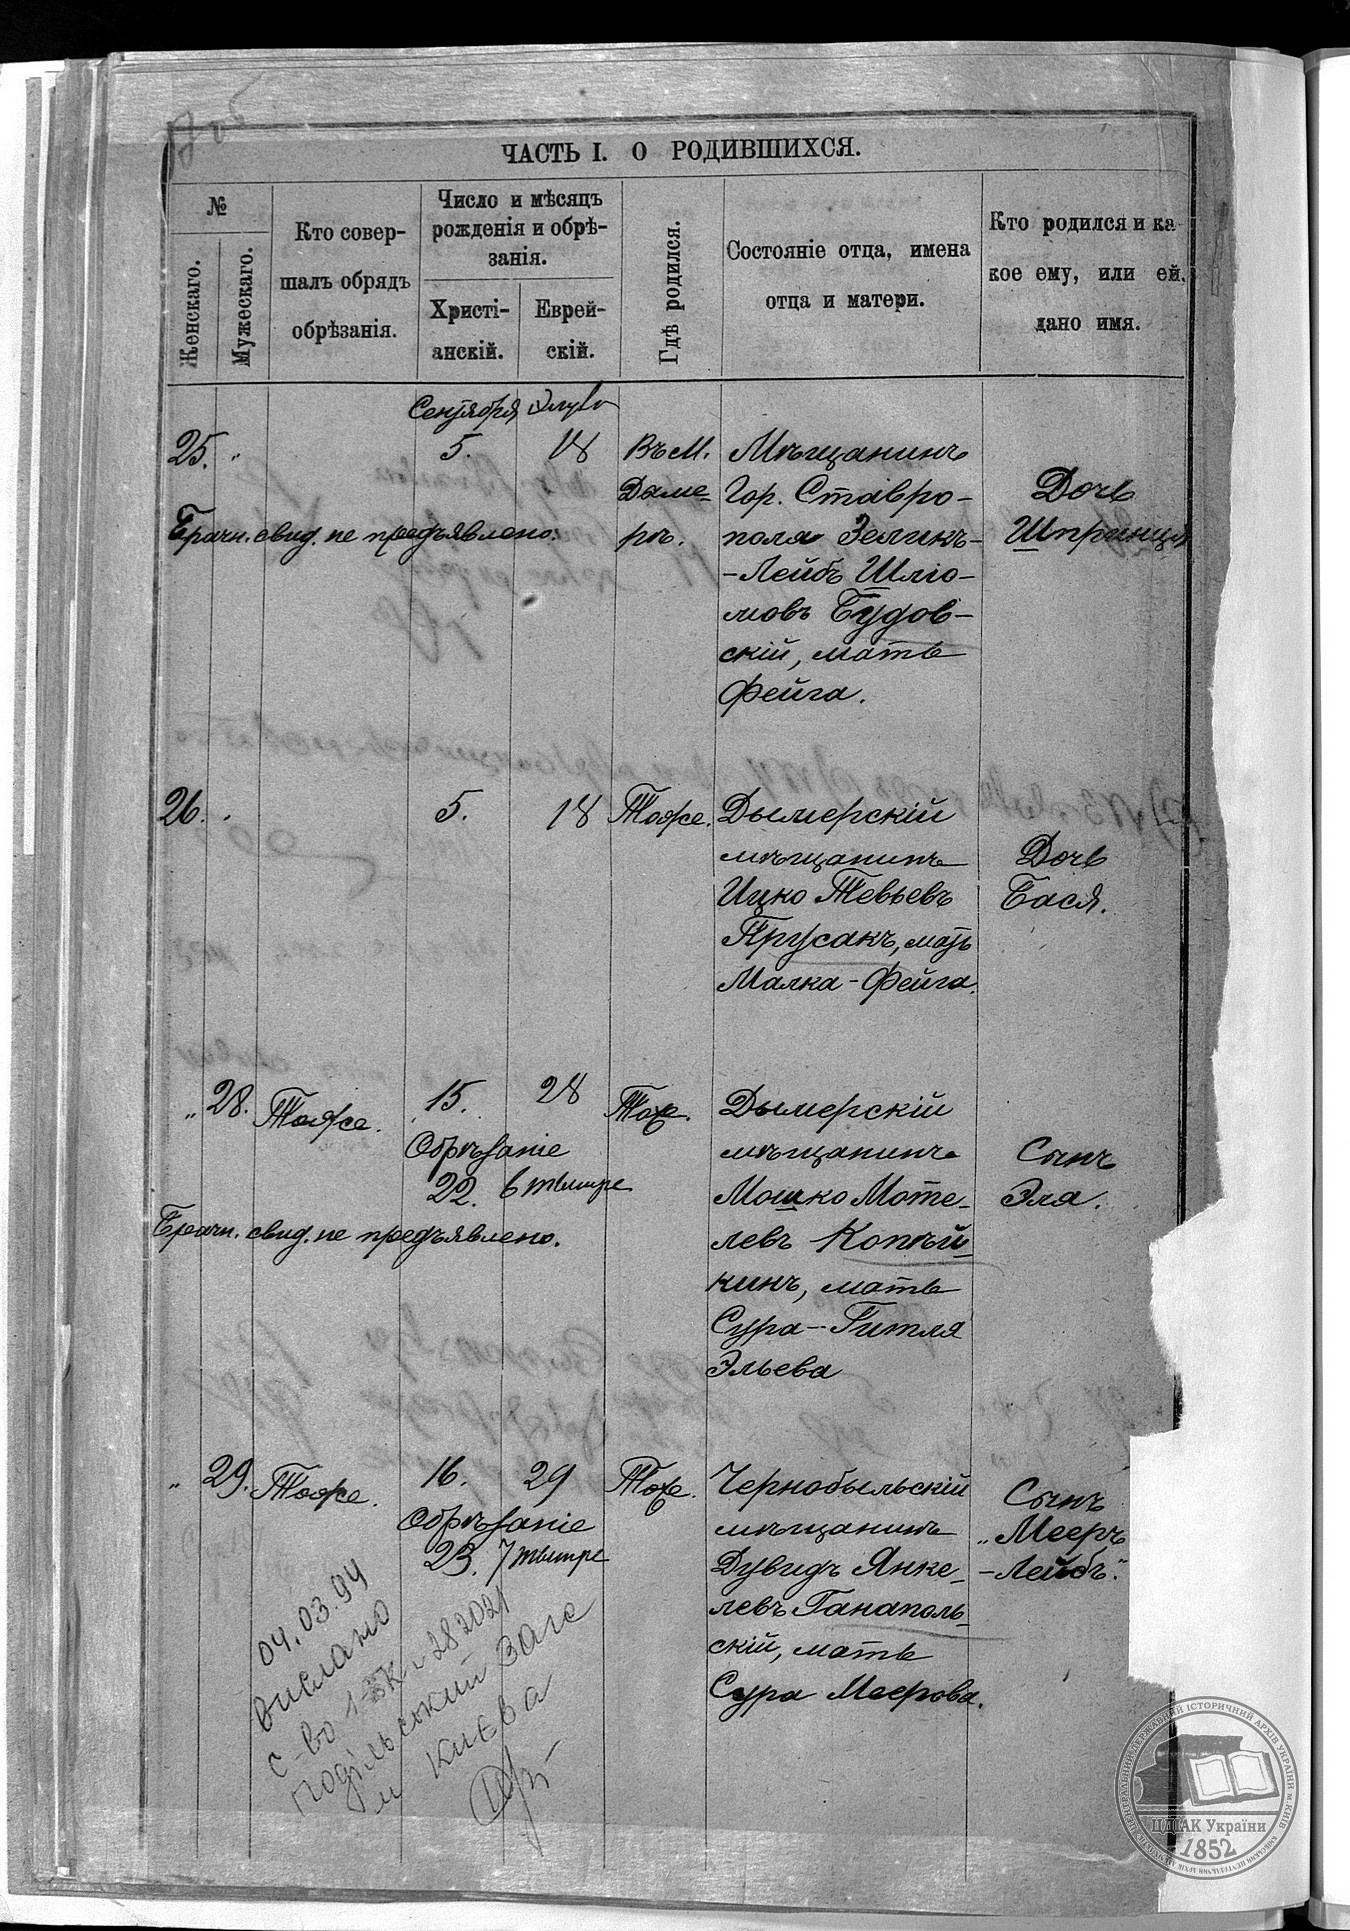 ЧАСТЬ I. О РОДИВШИХСЯ.
№
Женскаго.
Мужескаго.
Кто совер-
шалъ обрядъ
обрѣзанія.
Число и мѣсяцъ
рожденія и обрѣ-
занія.
Христі-
анскій.
Еврей-
скій.
Гдѣ родился.
Состояніе отца, имена
отца и матери.
Кто родился и ка
кое ему, или ей,
дано имя.
Сентября Элувъ
25. " 5. 18
Въ М.
Дыме-
рѣ.
Мѣщанинъ
Гор. Ставро-
поля Зеликъ-
-Лейбъ Шліо-
мовъ Будов-
скій, мать
Фейга.
Дочь
Шпринця
Брачн. свид. не предъявлено.
26. " 5. 18 Тоже.
Дымерскій
мѣщанинъ
Ицко Тевьевъ
Прусакъ, мать
Малка-Фейга.
Дочь
Бася.
" 28. Тоже. 15. 28 Тоже.
Обрѣзаніе
22. 6 тышре
Дымерскій
мѣщанинъ
Мошко Моте-
левъ Копѣй-
кинъ, мать
Сура-Гитля
Эльева
Сынъ
Эля.
Брачн. свид. не предъявлено.
" 29. Тоже. 16. 29 Тоже.
Обрѣзаніе
23. 7 тышре
Чернобыльскій
мѣщанинъ
Дувидъ Янке-
левъ Ганаполь-
скій, мать
Сура Меерова.
Сынъ
„Мееръ
-Лейбъ".
04.03.94
вислано
с-во 1-БК № 282021
Подільський Загс
м Києва
ЦЕНТРАЛЬНИЙ ДЕРЖАВНИЙ ІСТОРИЧНИЙ АРХІВ УКРАЇНИ м. КИЇВ
ЦДІАК України
1852